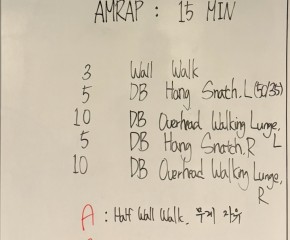 AMRAP : 15 MIN
3 Wall Walk
5 DB Hang Snatch, L (50/35)
10 DB Overhead Walking Lunge, L
5 DB Hang Snatch, R
10 DB Overhead Walking Lunge, R
A : Half Wall Walk, 무게 자유